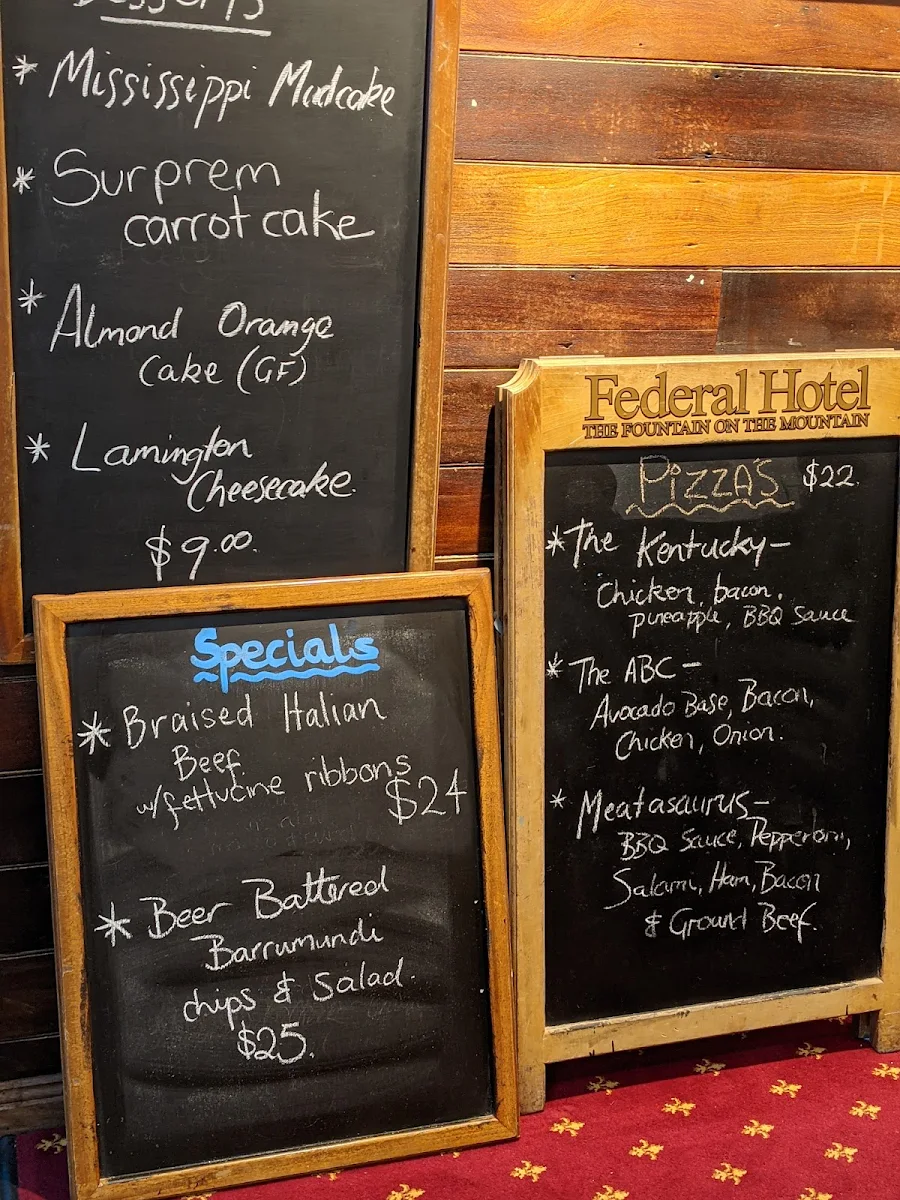 Desserts
* Mississippi Mudcake
* Surprem
carrot cake
* Almond Orange
Cake (GF)
* Lamington
Cheesecake.
$9.00.
Specials
* Braised Italian
Beef
w/fettucine ribbons
$24
* Beer Battered
Barrumundi
chips & Salad.
$25.
Federal Hotel
THE FOUNTAIN ON THE MOUNTAIN
PIZZA'S $22.
* The Kentucky-
Chicken, bacon,
pineapple, BBQ Sauce
* The ABC -
Avocado Base, Bacon,
Chicken, Onion.
* Meatasaurus-
BBQ Sauce, Pepperloni,
Salami, Ham, Bacon
& Ground Beef.